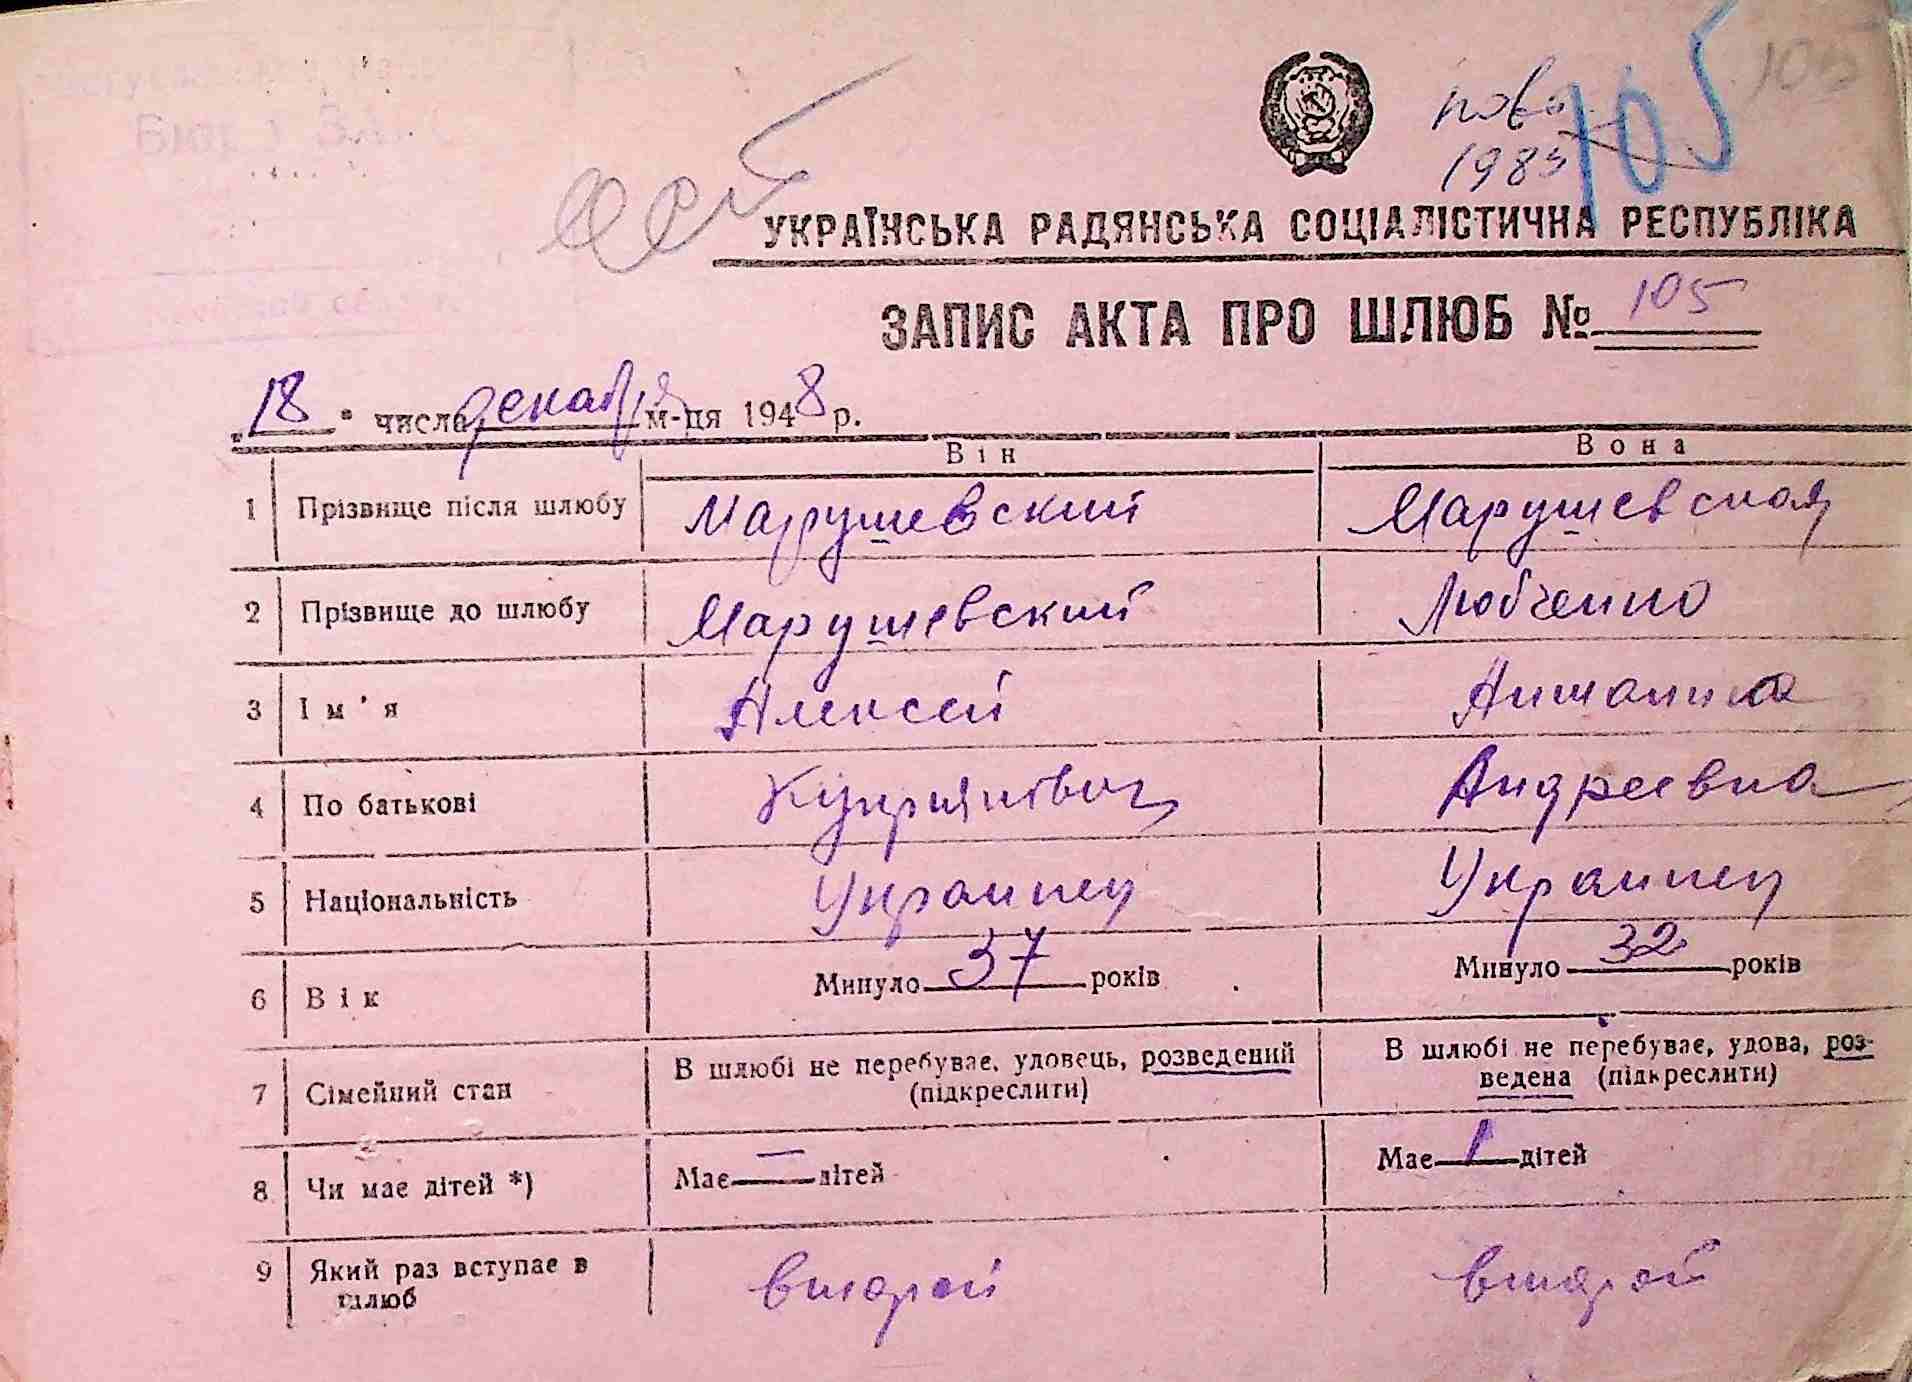 105
105
1983
УКРАЇНСЬКА РАДЯНСЬКА СОЦІАЛІСТИЧНА РЕСПУБЛІКА
ЗАПИС АКТА ПРО ШЛЮБ № 105
„18" числа декабря м-ця 1948 р.
Він Вона
1 Прізвище після шлюбу Марушевский Марушевская
2 Прізвище до шлюбу Марушевский Любченко
3 Ім'я Алексей Антонина
4 По батькові Куприянович Андреевна
5 Національність Украинец Украинец
6 Вік Минуло 37 років Минуло 32 років
7 Сімейний стан В шлюбі не перебуває, удовець, розведений (підкреслити) В шлюбі не перебуває, удова, роз-
ведена (підкреслити)
8 Чи має дітей *) Має — дітей Має 1 дітей
9 Який раз вступає в шлюб второй второй